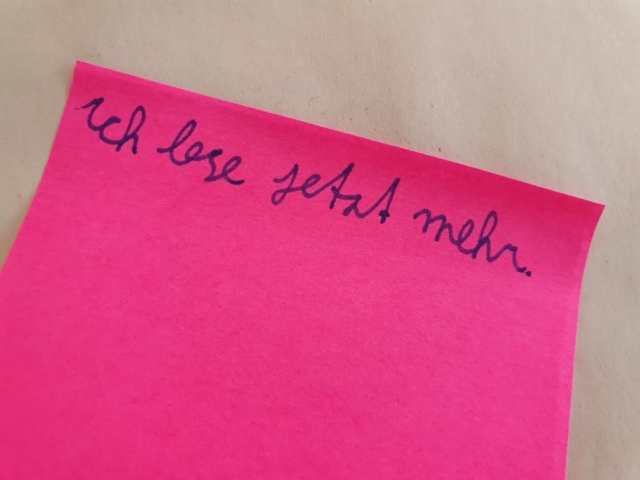 ich lese jetzt mehr.